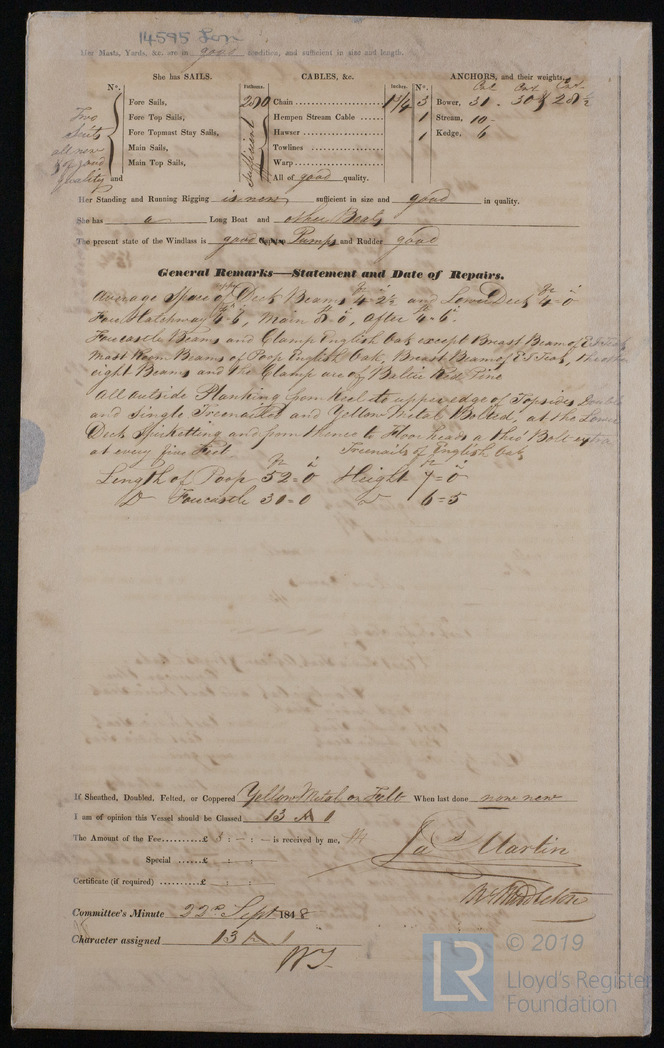 14595 Lon
Her Masts, Yards, &c. are in good condition, and sufficient in size and length.
She has SAILS.
CABLES, &c.
ANCHORS, and their weights.
Nº.
Fathoms.
Inches.
Nº.
Cwt Cwt Cwt
Two suits all new & of good quality
Fore Sails,
Fore Top Sails,
Fore Topmast Stay Sails,
Main Sails,
Main Top Sails,
and
Sufficient
Chain
Hempen Stream Cable
Hawser
Towlines
Warp
All of good quality.
3 Bower,
1 Stream, 10-
1 Kedge, 6
Her Standing and Running Rigging is new sufficient in size and good in quality.
She has a Long Boat and other Boats
The present state of the Windlass is good Capstan Pumps and Rudder good
General Remarks—Statement and Date of Repairs.
Average Space of Deck Beams and Lower Deck 4=0
Fore Hatchway 4-6, Main 8-0, After 4-6.
Forecastle Beams and Clamp English Oak except Breast Beam of E I Teak
Mast Room Beams of Poop English Oak, Breast Beam of E I Teak, the other
eight Beams and the Clamp are of Baltic Red Pine
All outside Planking from Keel to upper edge of Topsides Double
and Single Treenailed and Yellow Metal Bolted, at the Lower
Deck Spirketting and from thence to Floor heads a thro' Bolt extra
at every five Feet
Treenails of English Oak
Length of Poop 52=0 Height 7=0
Do Forecastle 31=0 Do 6=5
If Sheathed, Doubled, Felted, or Coppered Yellow Metal on Felt When last done now new
I am of opinion this Vessel should be Classed 13 A 1
The Amount of the Fee..........£ 5 : — : — is received by me,
Special ......£ : :
Certificate (if required) ..........£ : :
Jas Martin
Committee's Minute 22d Septr 1848
Character assigned 13 A 1
© 2019
LR
Lloyd's Register
Foundation